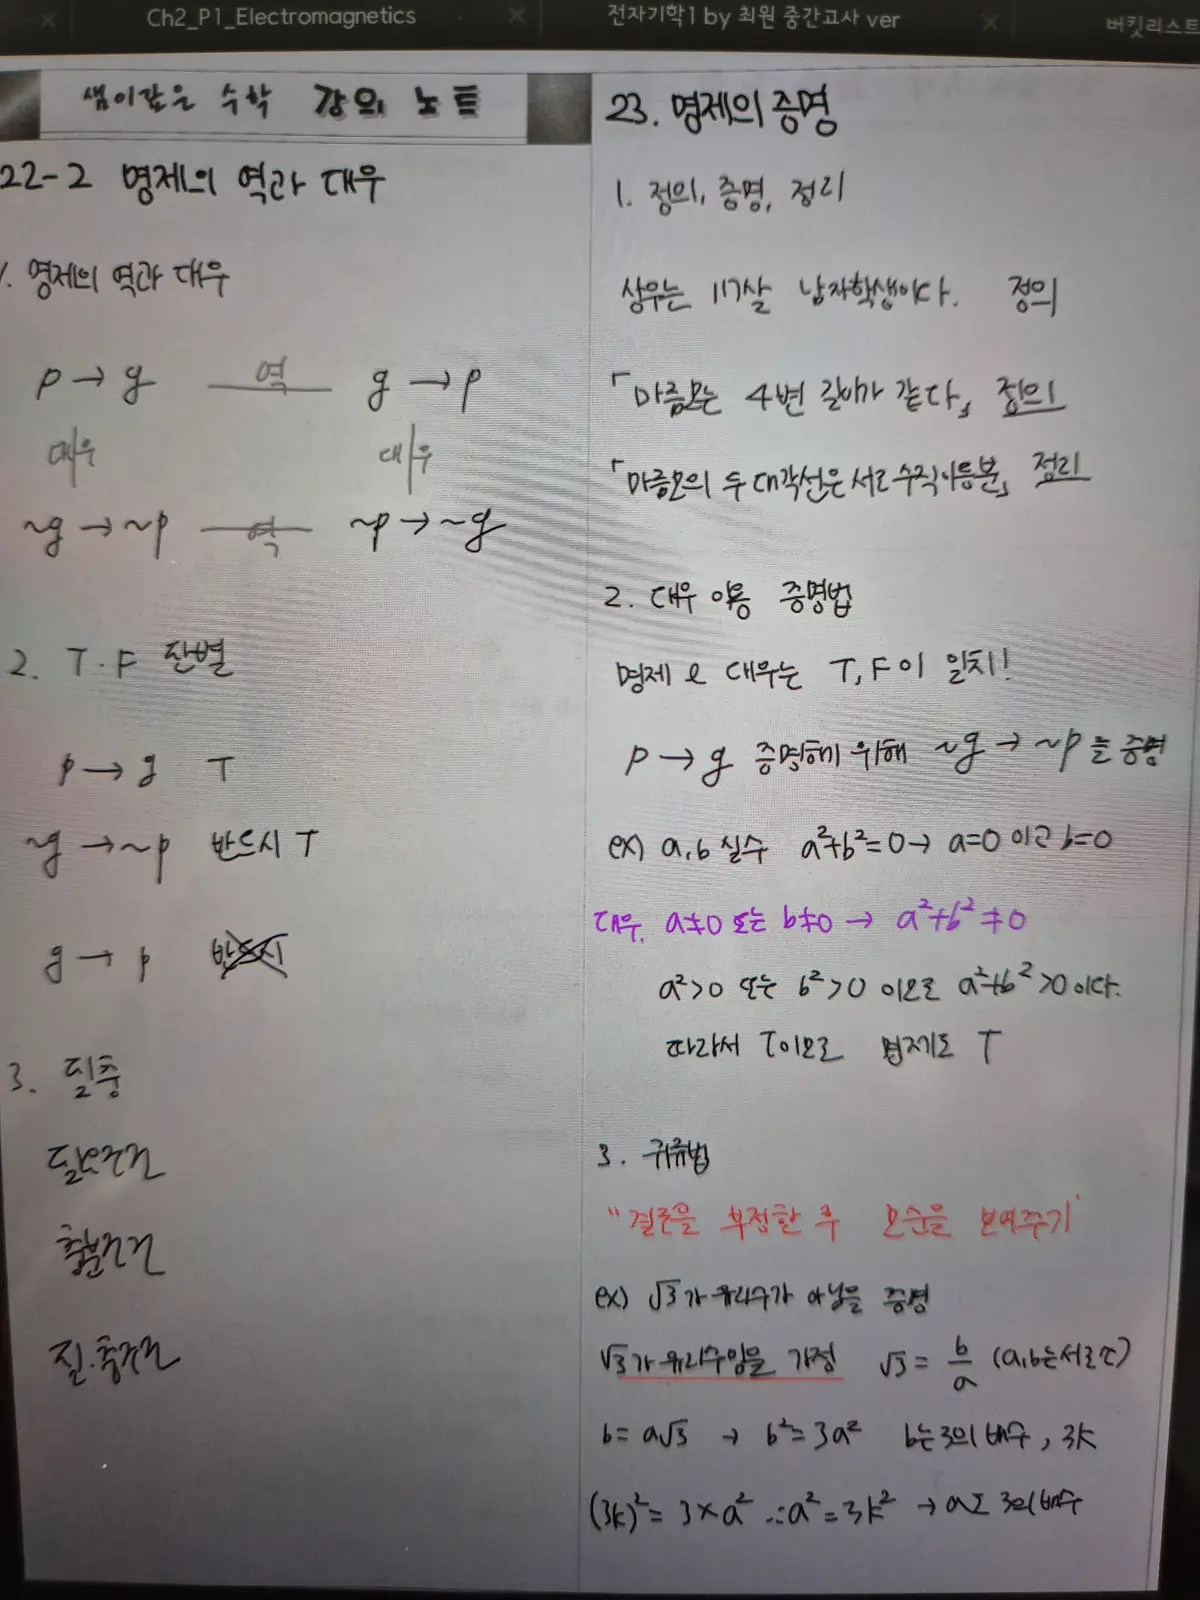 Ch2_P1_Electromagnetics
전자기학1 by 최원 중간고사 ver
버킷리스트
샘이같은 수학 강의 노트
22-2 명제의 역과 대우
1. 명제의 역과 대우
p → q 역 q → p
대우 대우
~q → ~p 역 ~p → ~q
2. T·F 판별
p → q T
~q → ~p 반드시 T
q → p 반드시
3. 필충
필요조건
충분조건
필·충조건
23. 명제의 증명
1. 정의, 증명, 정리
상우는 17살 남자학생이다. 정의
「마름모는 4변 길이가 같다」 정의
「마름모의 두 대각선은 서로 수직이등분」 정리
2. 대우 이용 증명법
명제 와 대우는 T, F이 일치!
p → q 증명하기 위해 ~q → ~p를 증명
ex) a, b 실수 a²+b²=0 → a=0 이고 b=0
대우. a≠0 또는 b≠0 → a²+b²≠0
a²>0 또는 b²>0 이므로 a²+b²>0 이다.
따라서 T이므로 명제도 T
3. 귀류법
"결론을 부정한 후 모순을 보여주기"
ex) √3가 유리수가 아님을 증명
√3가 유리수임을 가정 √3 = b/a (a, b는 서로소)
b = a√3 → b²=3a² b는 3의 배수, 3k
(3k)² = 3×a² ∴a² = 3k² → a도 3의 배수